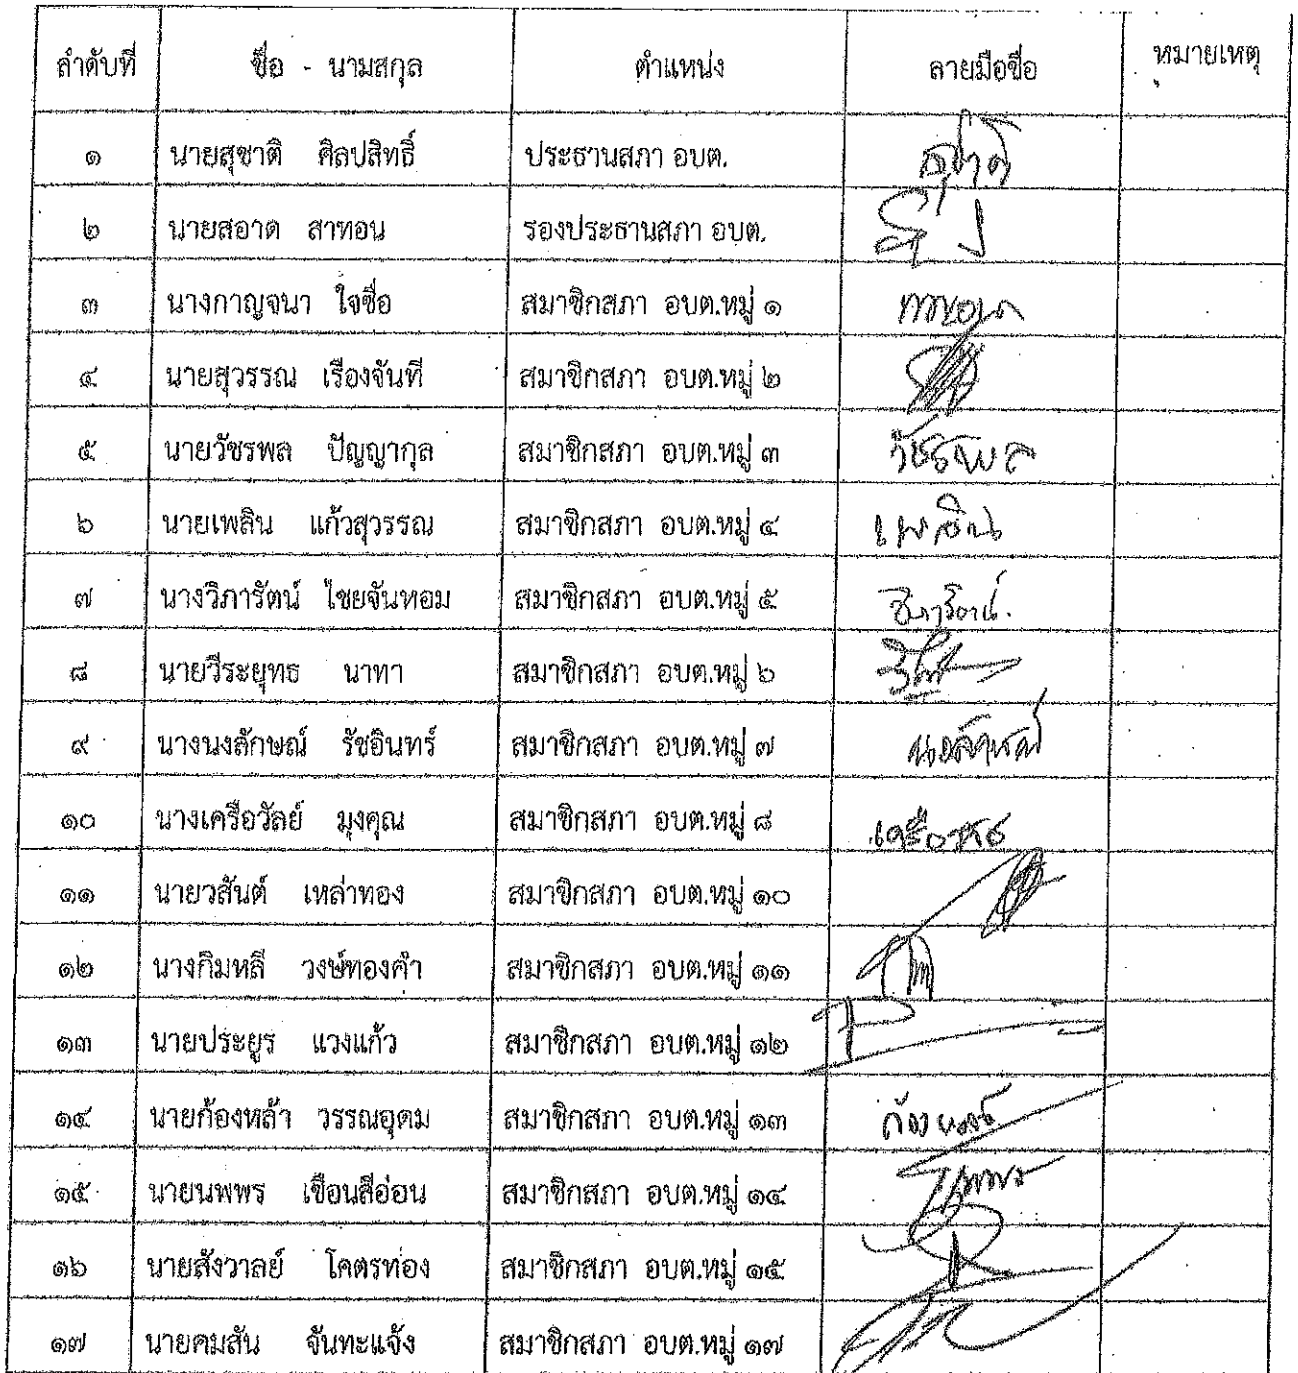 ลำดับที่ ชื่อ - นามสกุล ตำแหน่ง ลายมือชื่อ หมายเหตุ
๑ นายสุชาติ ศิลปสิทธิ์ ประธานสภา อบต. สุชาติ
๒ นายสอาด สาทอน รองประธานสภา อบต.
๓ นางกาญจนา ใจซื่อ สมาชิกสภา อบต.หมู่ ๑
๔ นายสุวรรณ เรืองจันที สมาชิกสภา อบต.หมู่ ๒
๕ นายวัชรพล ปัญญากุล สมาชิกสภา อบต.หมู่ ๓ วัชรพล
๖ นายเพลิน แก้วสุวรรณ สมาชิกสภา อบต.หมู่ ๔ เพลิน
๗ นางวิภารัตน์ ไชยจันทอม สมาชิกสภา อบต.หมู่ ๕ วิภารัตน์
๘ นายวีระยุทธ นาทา สมาชิกสภา อบต.หมู่ ๖
๙ นางนงลักษณ์ รัชอินทร์ สมาชิกสภา อบต.หมู่ ๗ นงลักษณ์
๑๐ นางเครือวัลย์ มุงคุณ สมาชิกสภา อบต.หมู่ ๘ เครือวัลย์
๑๑ นายวสันต์ เหล่าทอง สมาชิกสภา อบต.หมู่ ๑๐
๑๒ นางกิมหลี วงษ์ทองคำ สมาชิกสภา อบต.หมู่ ๑๑
๑๓ นายประยูร แวงแก้ว สมาชิกสภา อบต.หมู่ ๑๒
๑๔ นายก้องหล้า วรรณอุดม สมาชิกสภา อบต.หมู่ ๑๓ ก้องหล้า
๑๕ นายนพพร เขือนสีอ่อน สมาชิกสภา อบต.หมู่ ๑๔
๑๖ นายสังวาลย์ โคตรท่อง สมาชิกสภา อบต.หมู่ ๑๕
๑๗ นายคมสัน จันทะแจ้ง สมาชิกสภา อบต.หมู่ ๑๗